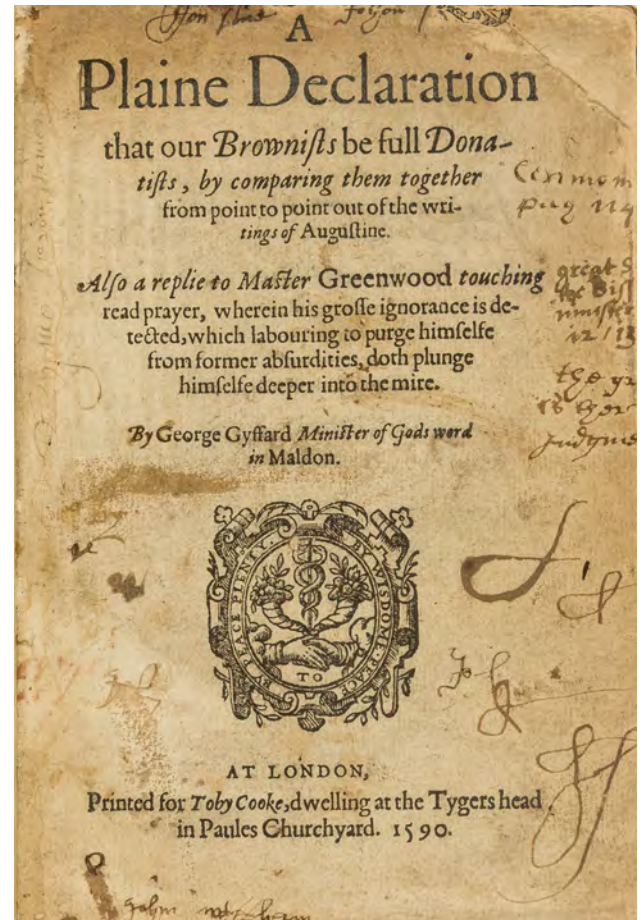 A
Plaine Declaration
that our Brownists be full Dona-
tists, by comparing them together
from point to point out of the wri-
tings of Augustine.
Also a replie to Master Greenwood touching
read prayer, wherein his grosse ignorance is de-
tected, which labouring to purge himselfe
from former absurdities, doth plunge
himselfe deeper into the mire.
great
the
By George Gyffard Minister of Gods word
in Maldon.
BY WISDOME PEACE BY PEACE PLENTY
TO
AT LONDON,
Printed for Toby Cooke, dwelling at the Tygers head
in Paules Churchyard. 1590.
John